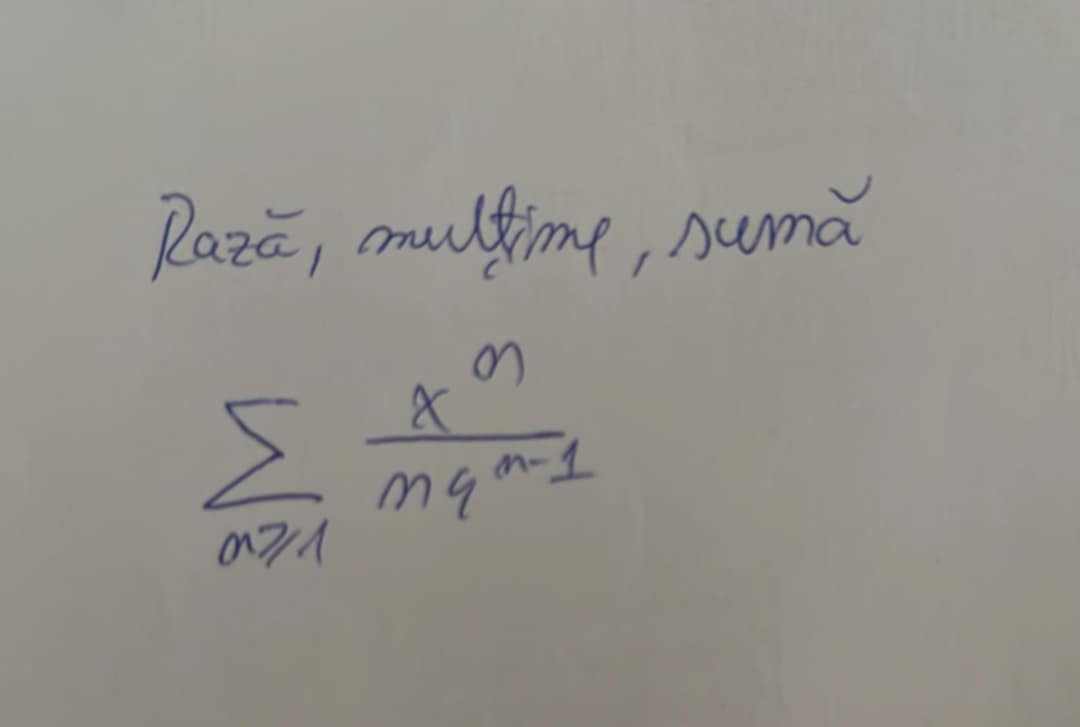 Rază, mulțime, sumă
∑_{n≥1} x^n / (n9^{n-1})